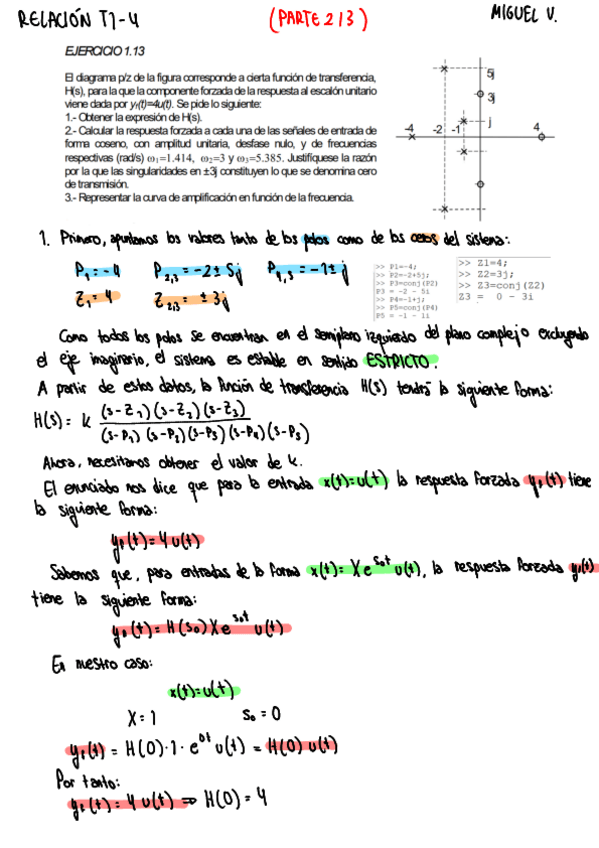 RELACIÓN T1-4
(PARTE 2/3)
MIGUEL V.
EJERCICIO 1.13
El diagrama p/z de la figura corresponde a cierta función de transferencia,
H(s), para la que la componente forzada de la respuesta al escalón unitario
viene dada por yf(t)=4u(t). Se pide lo siguiente:
1.- Obtener la expresión de H(s).
2.- Calcular la respuesta forzada a cada una de las señales de entrada de
forma coseno, con amplitud unitaria, desfase nulo, y de frecuencias
respectivas (rad/s) ω1=1.414, ω2=3 y ω3=5.385. Justifíquese la razón
por la que las singularidades en ±3j constituyen lo que se denomina cero
de transmisión.
3.- Representar la curva de amplificación en función de la frecuencia.
5j
3j
j
-4 -2 -1 4
1. Primero, apuntamos los valores tanto de los polos como de los ceros del sistema:
P1 = -4 P2,3 = -2 ± 5j P4,5 = -1 ± j
Z1 = 4 Z2,3 = ± 3j
>> P1=-4;
>> P2=-2+5j;
>> P3=conj(P2)
P3 = -2 - 5i
>> P4=-1+j;
>> P5=conj(P4)
P5 = -1 - 1i
>> Z1=4;
>> Z2=3j;
>> Z3=conj(Z2)
Z3 = 0 - 3i
Como todos los polos se encuentran en el semiplano izquierdo del plano complejo excluyendo
el eje imaginario, el sistema es estable en sentido ESTRICTO.
A partir de estos datos, la función de transferencia H(s) tendrá la siguiente forma:
H(s) = k (s-Z1)(s-Z2)(s-Z3) / (s-P1)(s-P2)(s-P3)(s-P4)(s-P5)
Ahora, necesitamos obtener el valor de k.
El enunciado nos dice que para la entrada x(t)=u(t) la respuesta forzada yf(t) tiene
la siguiente forma:
yf(t) = 4u(t)
Sabemos que, para entradas de la forma x(t) = X e^{s0t} u(t), la respuesta forzada yf(t)
tiene la siguiente forma:
yf(t) = H(s0) X e^{s0t} u(t)
En nuestro caso:
x(t)=u(t)
X = 1 s0 = 0
yf(t) = H(0)·1·e^{0t} u(t) = H(0) u(t)
Por tanto:
yf(t) = 4 u(t) ⇒ H(0) = 4